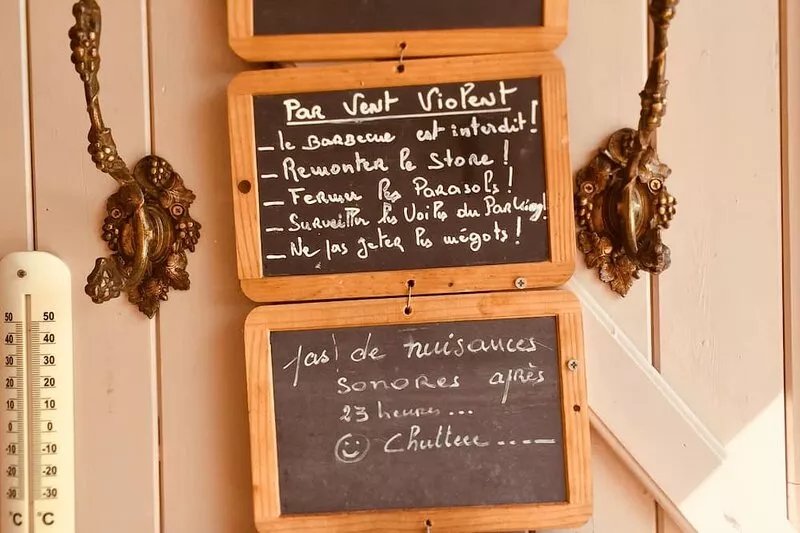 Par Vent Violent
- le Barbecue est interdit!
- Remonter le Store!
- Fermer les Parasols!
- Surveiller les Voiles du Parking!
- Ne pas jeter les mégots!
pas! de nuisances
sonores après
23 heures...
Chutteee .....
50 50
40 40
30 30
20 20
10 10
0 0
-10 -10
-20 -20
-30 -30
°C °C